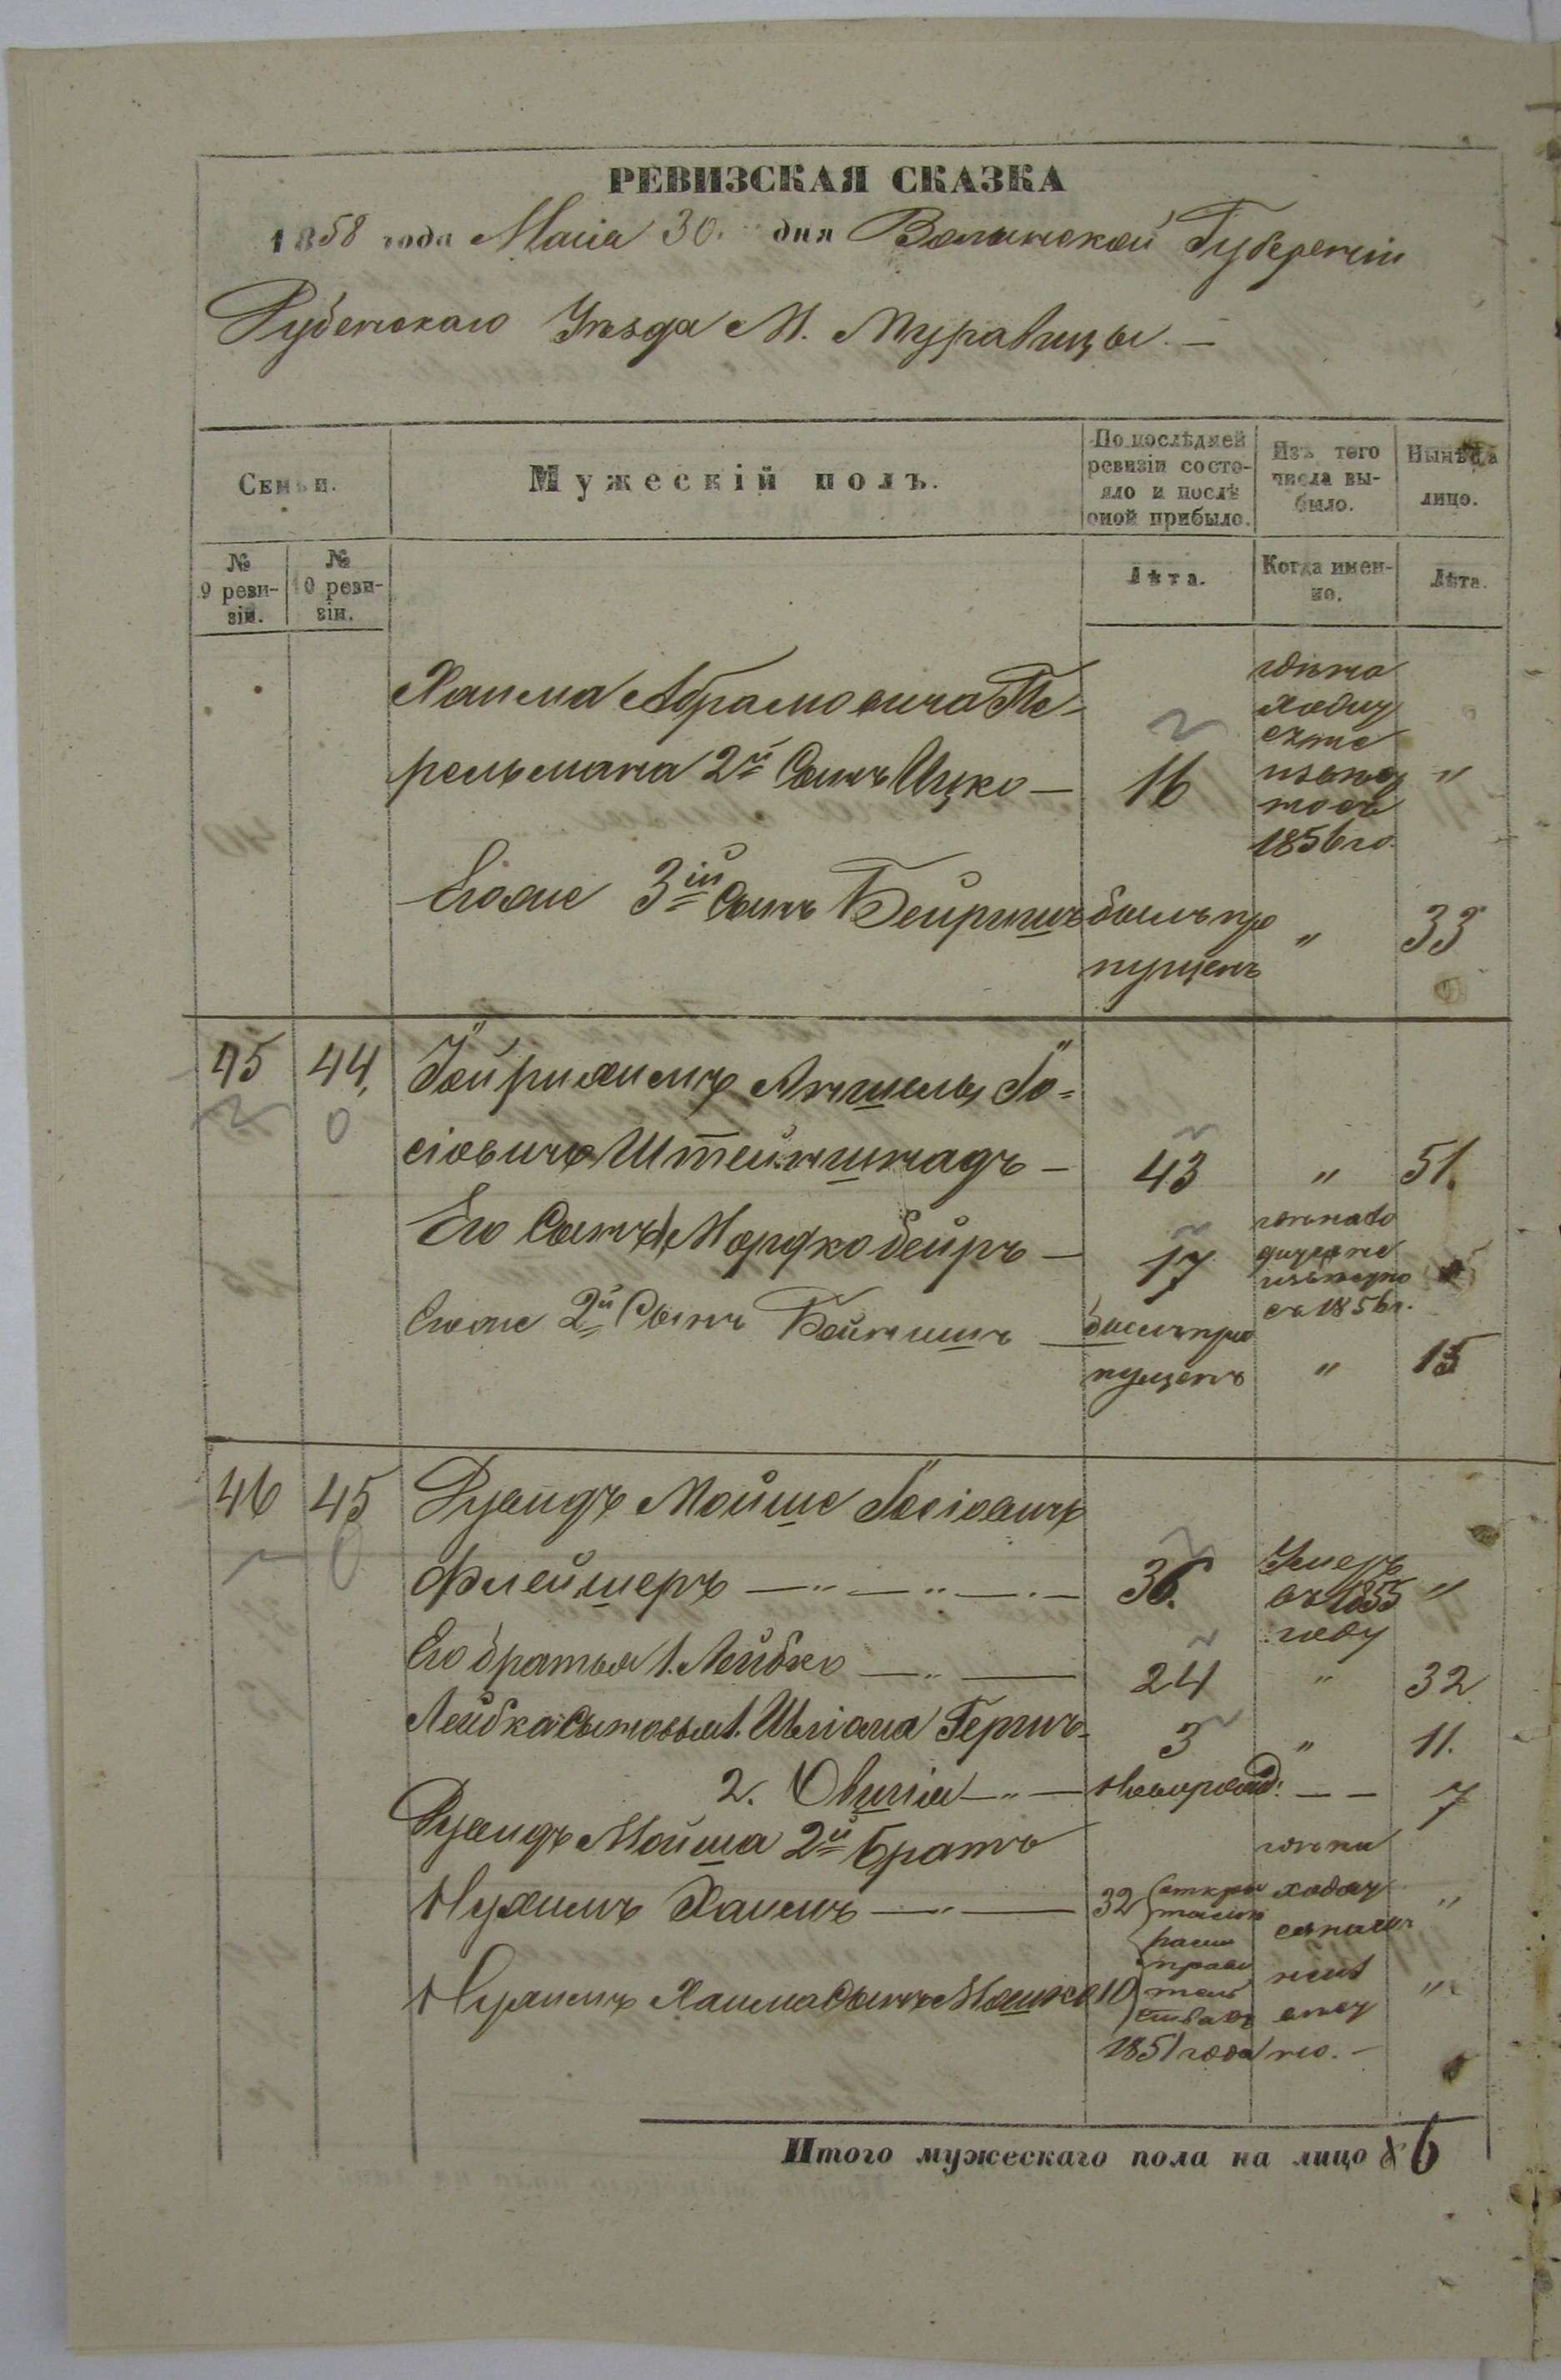 РЕВИЗСКАЯ СКАЗКА
1858 года Маія 30. дня Волынской Губерніи
Дубенскаго Уѣзда М. Муравицы. —
Семьи.
Мужескій полъ.
По послѣдней ревизіи состояло и послѣ оной прибыло.
Изъ того числа выбыло.
Нынѣ на лицо.
№ 9 ревизіи.
№ 10 ревизіи.
Лѣта.
Когда именно.
Лѣта.
Хаима Абрамовича Пе-
рельмана 2й Сынъ Ицко — 16 1856го. "
Егоже 3ій Сынъ Бейришъ былъ про пущенъ " 33
45 44,
Іо=
сіовичъ Штейнштадъ — 43 " 51.
Его Сынъ Мордко бейръ — 17 съ 1856г.
Егоже 2й Сынъ былъ про
пущенъ " 15
46 45 Мойше Іосіовичъ
Флейшеръ — " — " — . — 36. Умеръ въ 1855 году "
Его братья 1. Лейбко — " — 24 " 32
Лейбка Сыновья 1. 3 " 11.
2. — " — Новорожд: — — 7
Мойша 2й братъ
Нухимъ Хаимъ — " — 32 "
Нухимъ Хаима Сынъ Мошко 10 "
1851 года
Итого мужескаго пола на лицо 6